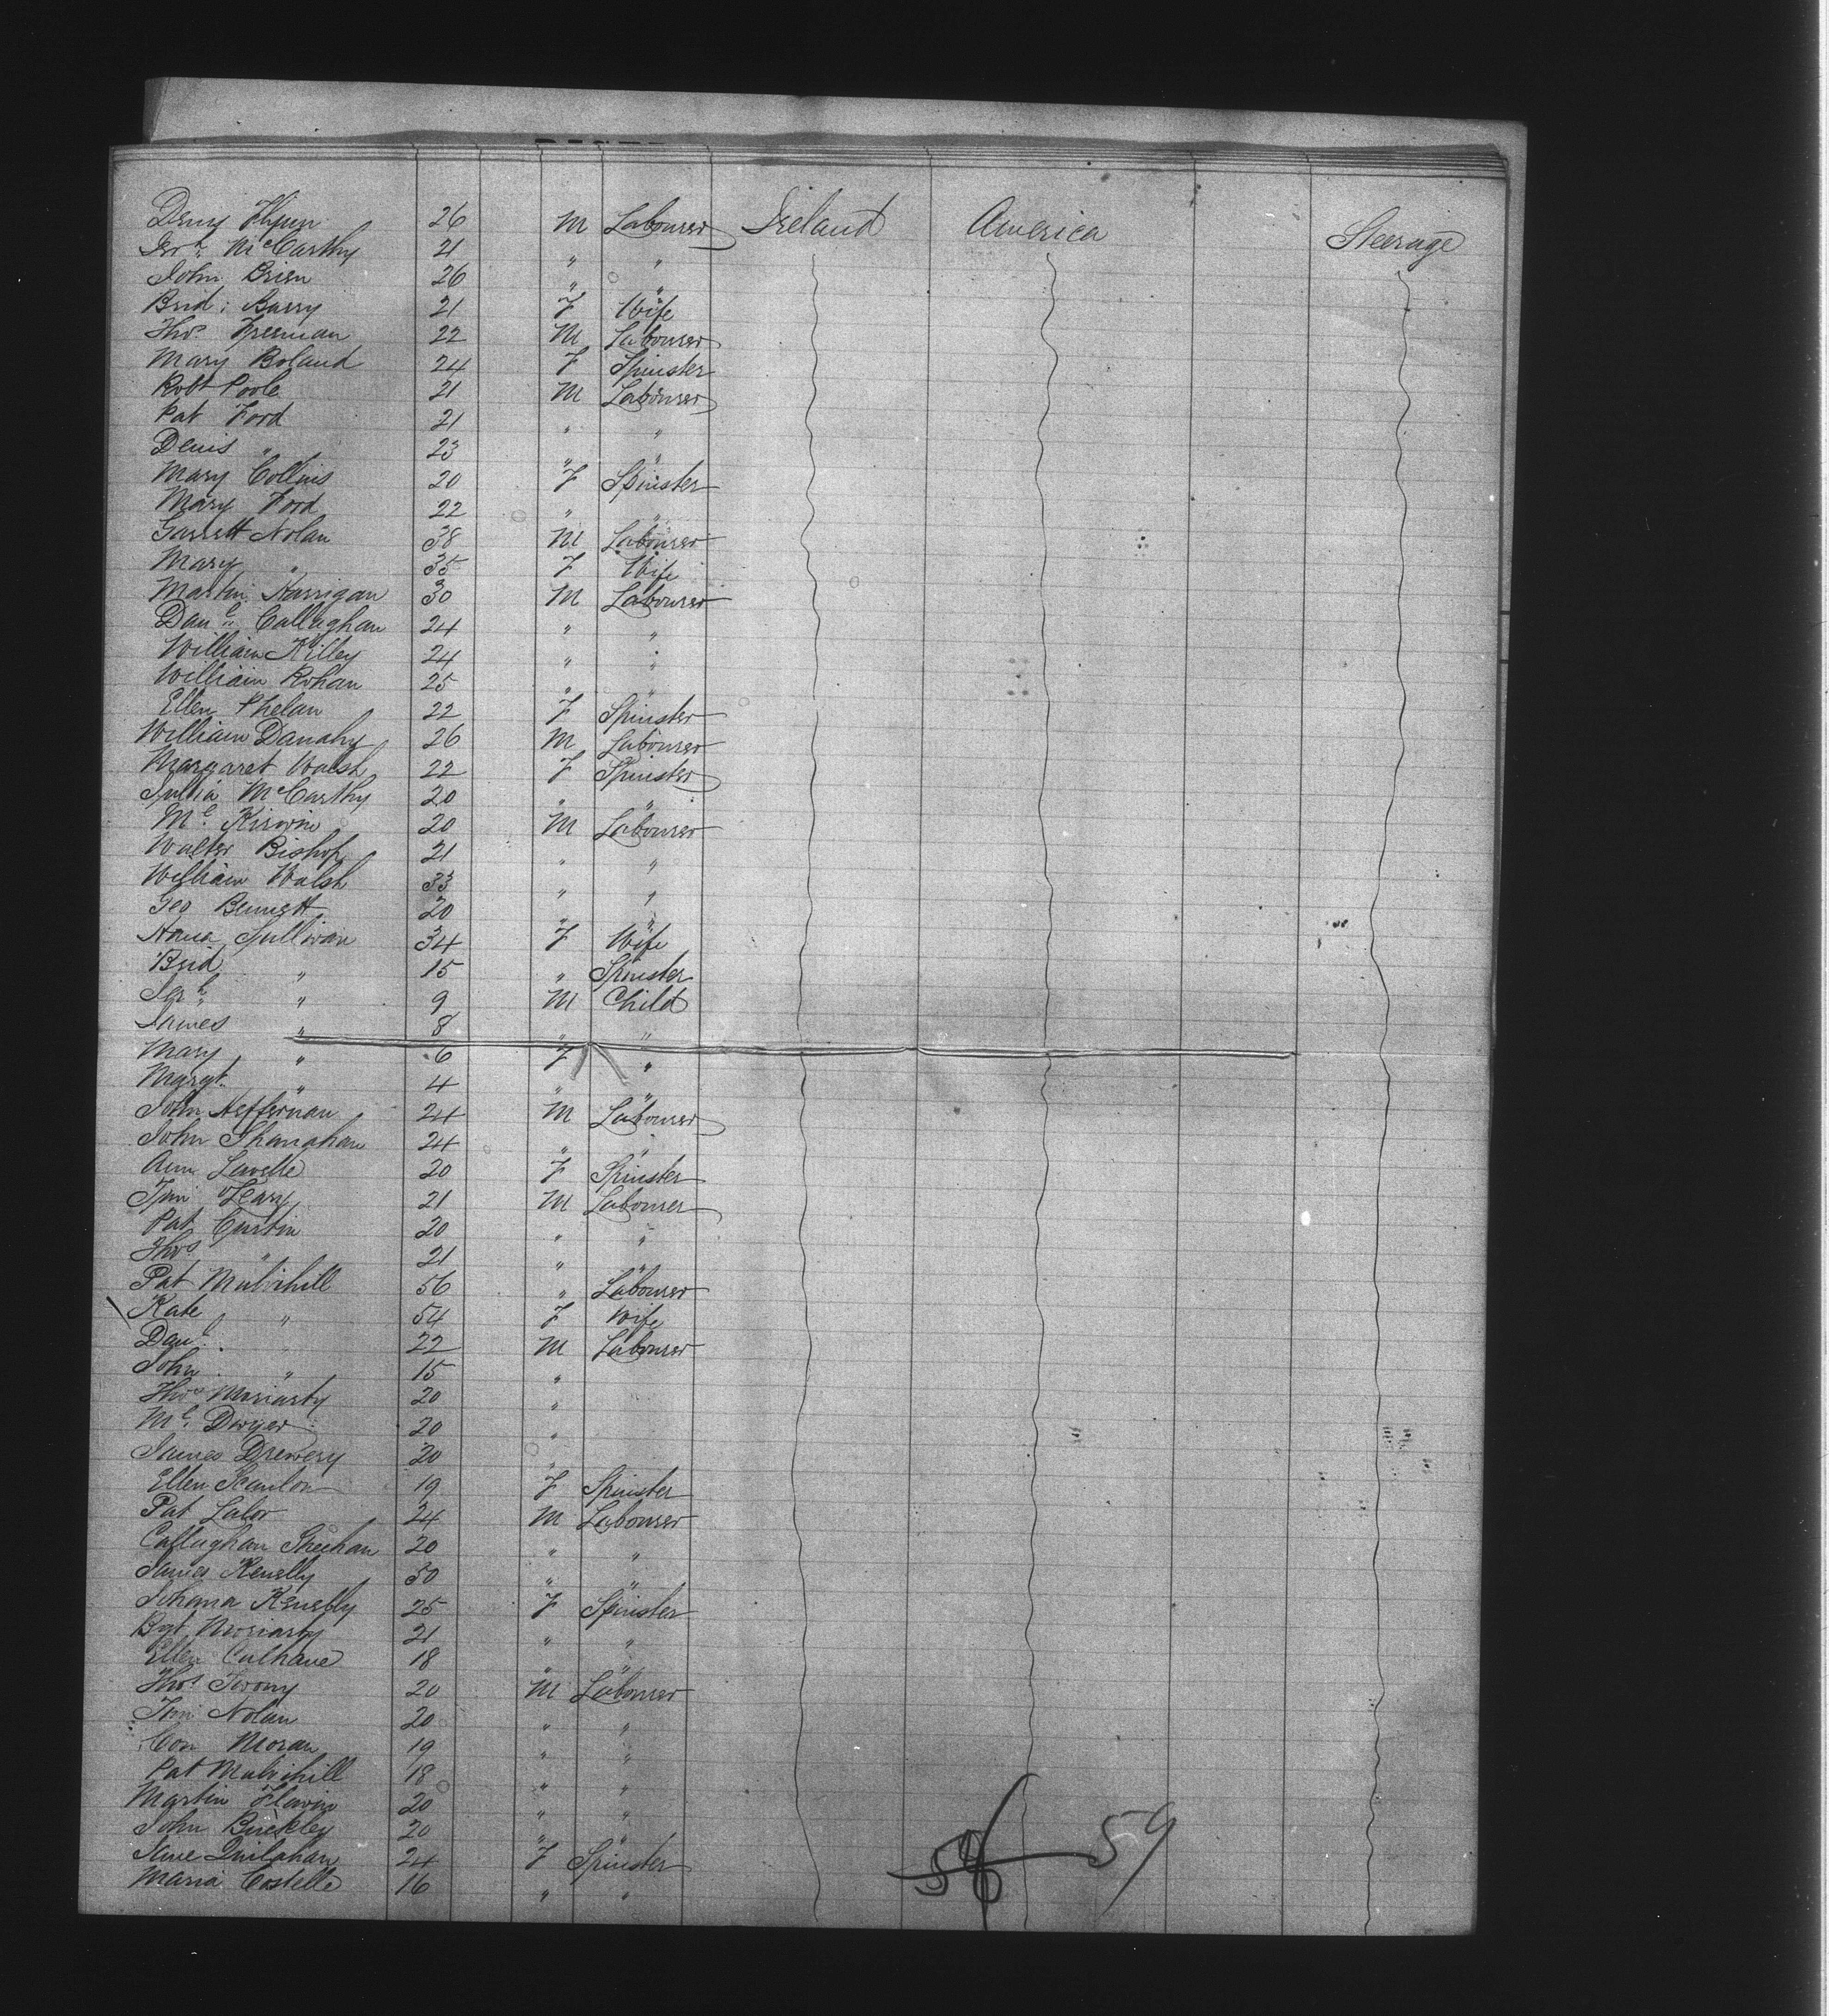 Deny Flynn 26 M Labourer Ireland America Steerage
Jerh McCarthy 21 " "
John Brien 26 " "
Brid: Barry 21 F Wife
Thos Freeman 22 M Labourer
Mary Boland 24 F Spinster
Robt Poole 21 M Labourer
Pat Ford 21 " "
Denis " 23 " "
Mary Collins 20 F Spinster
Mary Ford 22 " "
Garrett Nolan 38 M Labourer
Mary " 35 F Wife
Martin Harrigan 30 M Labourer
Danl Callaghan 24 " "
William Killey 24 " "
William Rohan 25 " "
Ellen Phelan 22 F Spinster
William Danahy 26 M Labourer
Margaret Walsh 22 F Spinster
Julia McCarthy 20 " "
Ml Kirwin 20 M Labourer
Walter Bishop 21 " "
William Walsh 33 " "
Geo Bennett 20 " "
Hana Sullivan 34 F Wife
Brid " 15 " Spinster
Jerh " 9 M Child
James " 8 " "
Mary " 6 F "
Margt " 4 " "
John Heffernan 24 M Labourer
John Shanahan 24 " "
Ann Lavelle 20 F Spinster
Tim Leary 21 M Labourer
Pat Curtin 20 " "
Thos " 21 " "
Pat Mulvihill 56 " Labourer
Kate " 54 F Wife
Danl " 22 M Labourer
John " 15 "
Thos Moriarty 20 "
Ml Dwyer 20 "
James Drewery 20 "
Ellen Scanlon 19 F Spinster
Pat Lalor 24 M Labourer
Callaghan Sheehan 20 " "
James Kenelly 30 " "
Johana Kenelly 25 F Spinster
Bgt Moriarty 21 " "
Ellen Culhane 18 " "
Thos 20 M Labourer
Tim Nolan 20 " "
Con Moran 19 " "
Pat Mulvihill 18 " "
Martin Flavin 20 " "
John Buckley 20 " "
Quilahan 24 F Spinster
Maria Costelle 16 " "
59